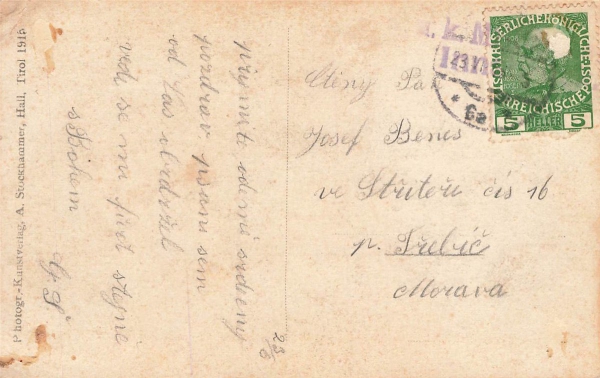 Photogr.-Kunstverlag, A. Stockhammer, Hall, Tirol 1915
přijměte odemě srdečný
pozdrav psaní sem
od Vás obdržel
vede se mi furt stejně
s Bohem
23
Ctěný Pan
Josef Beneš
ve Stříteři čís 16
p. Třebíč
Morava
K. K.
23
KAISERLICHE KÖNIGLICHE
ÖSTERREICHISCHE POST
5 HELLER 5